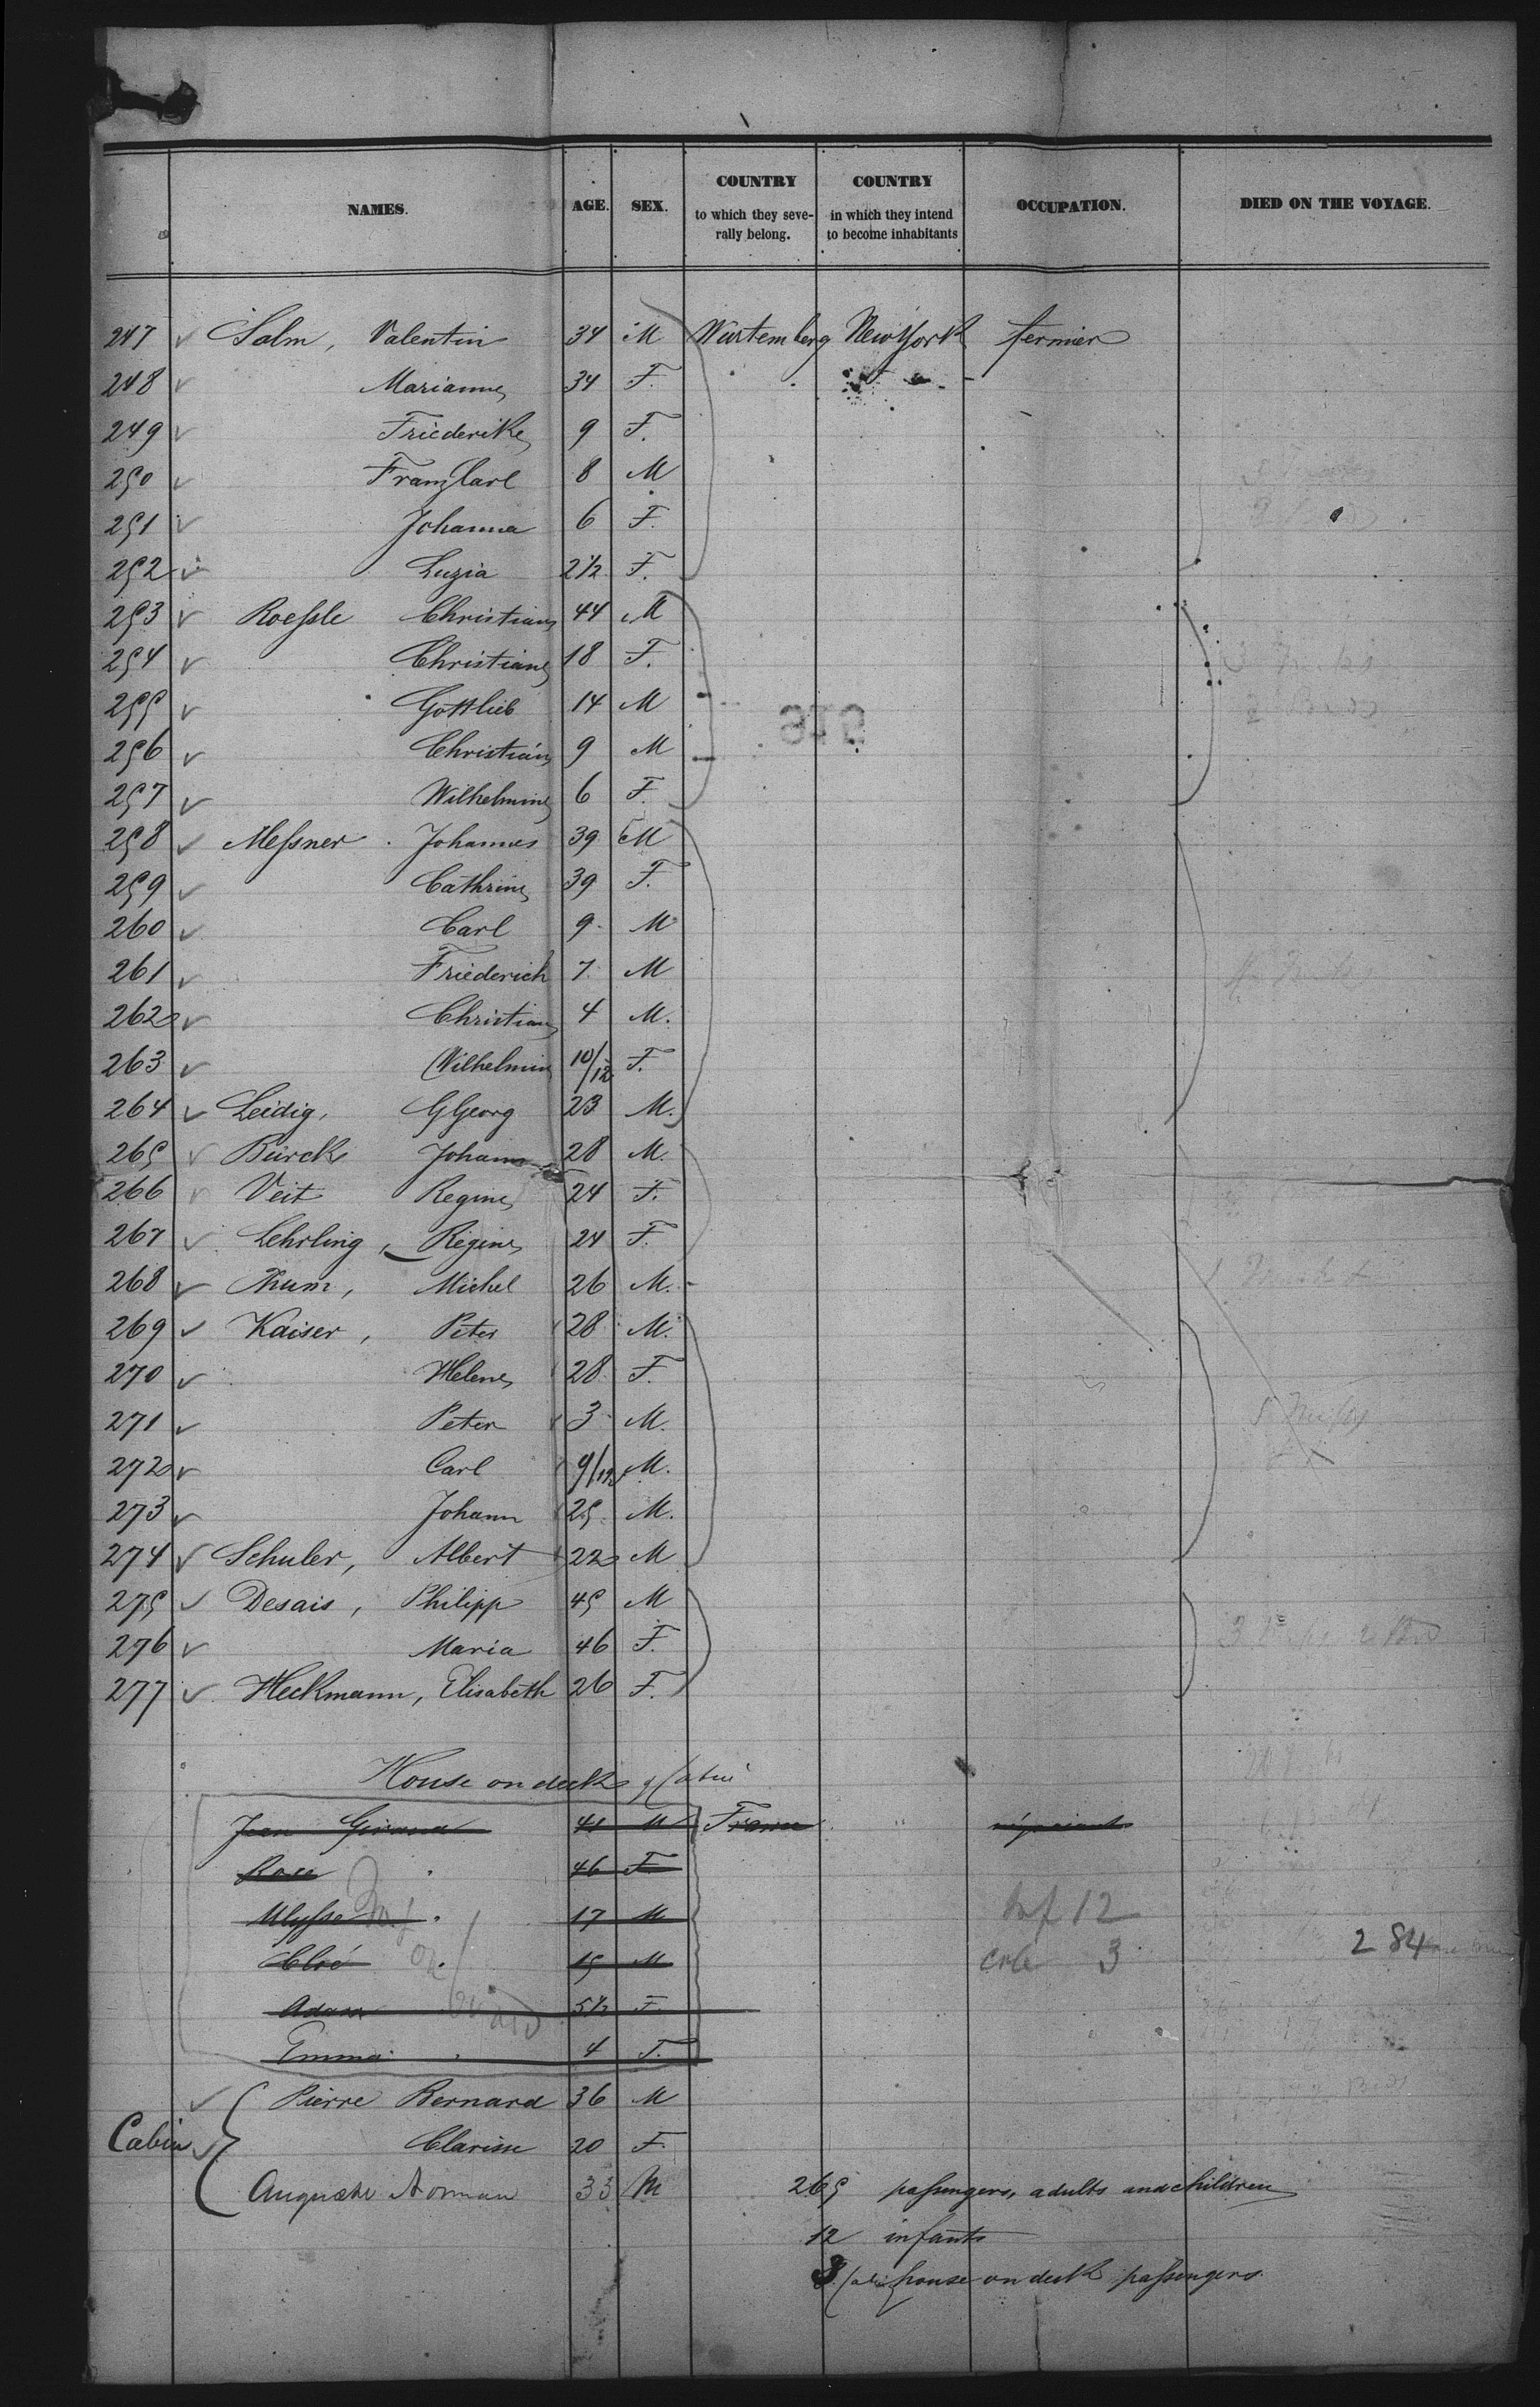 NAMES. AGE. SEX. COUNTRY to which they seve- rally belong. COUNTRY in which they intend to become inhabitants OCCUPATION. DIED ON THE VOYAGE.
247 Salm, Valentin 34 M Wurtemberg New York fermier
248 Marianne 34 F.
249 Friederike 9 F.
250 Franz Carl 8 M
251 Johanna 6 F.
252 Luzia 2½ F.
253 Roessle Christian 44 M
254 Christiane 18 F.
255 Gottlieb 14 M
256 Christian 9 M
257 Wilhelmine 6 F.
258 Messner Johannes 39 M
259 Cathrine 39 F.
260 Carl 9 M
261 Friederich 7 M
262 Christian 4 M.
263 Wilhelmin 10/12 F.
264 Leidig, G Georg 23 M.
265 Bürck Johann 28 M.
266 Veit Regine 24 F.
267 Lehrling, Regine 24 F.
268 Michel 26 M.
269 Kaiser, Peter 28 M.
270 Helene 28 F.
271 Peter 3 M.
272 Carl 9/12 M.
273 Johann 25 M.
274 Schuler, Albert 22 M
275 Desais, Philipp 45 M
276 Maria 46 F.
277 Heckmann, Elisabeth 26 F.
House on deck
Jean 41 M France
Rose 46 F
Ulysse 17 M Inf 12
15 M 3 284
5½ F
Emma 4 F.
Pierre Bernard 36 M
Cabin Clarisse 20 F.
Auguste 33 M 265 passengers, adults and children
12 infants
8 house on deck passengers